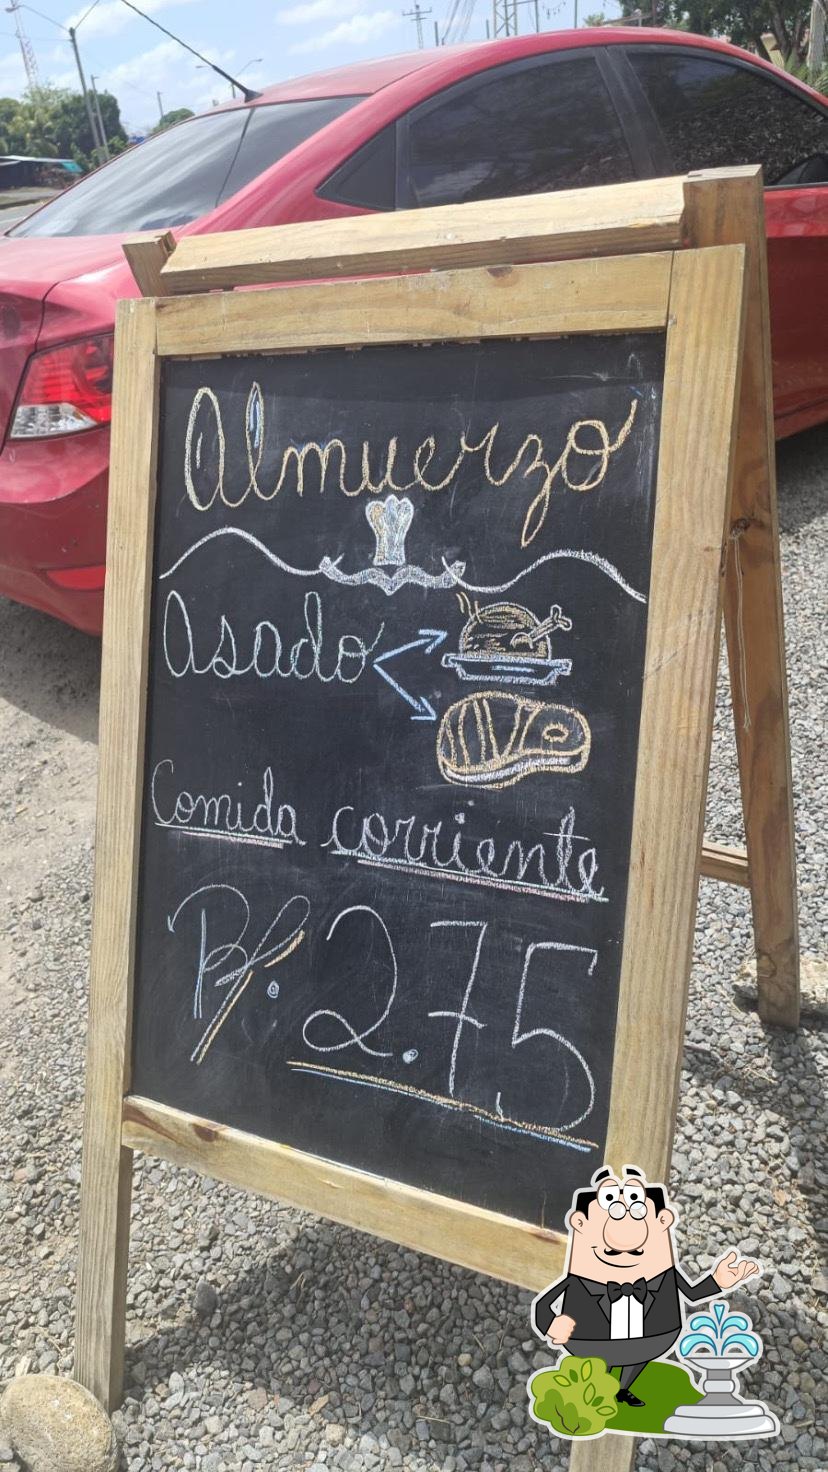 Almuerzo
Asado
Comida corriente
B/. 2.75